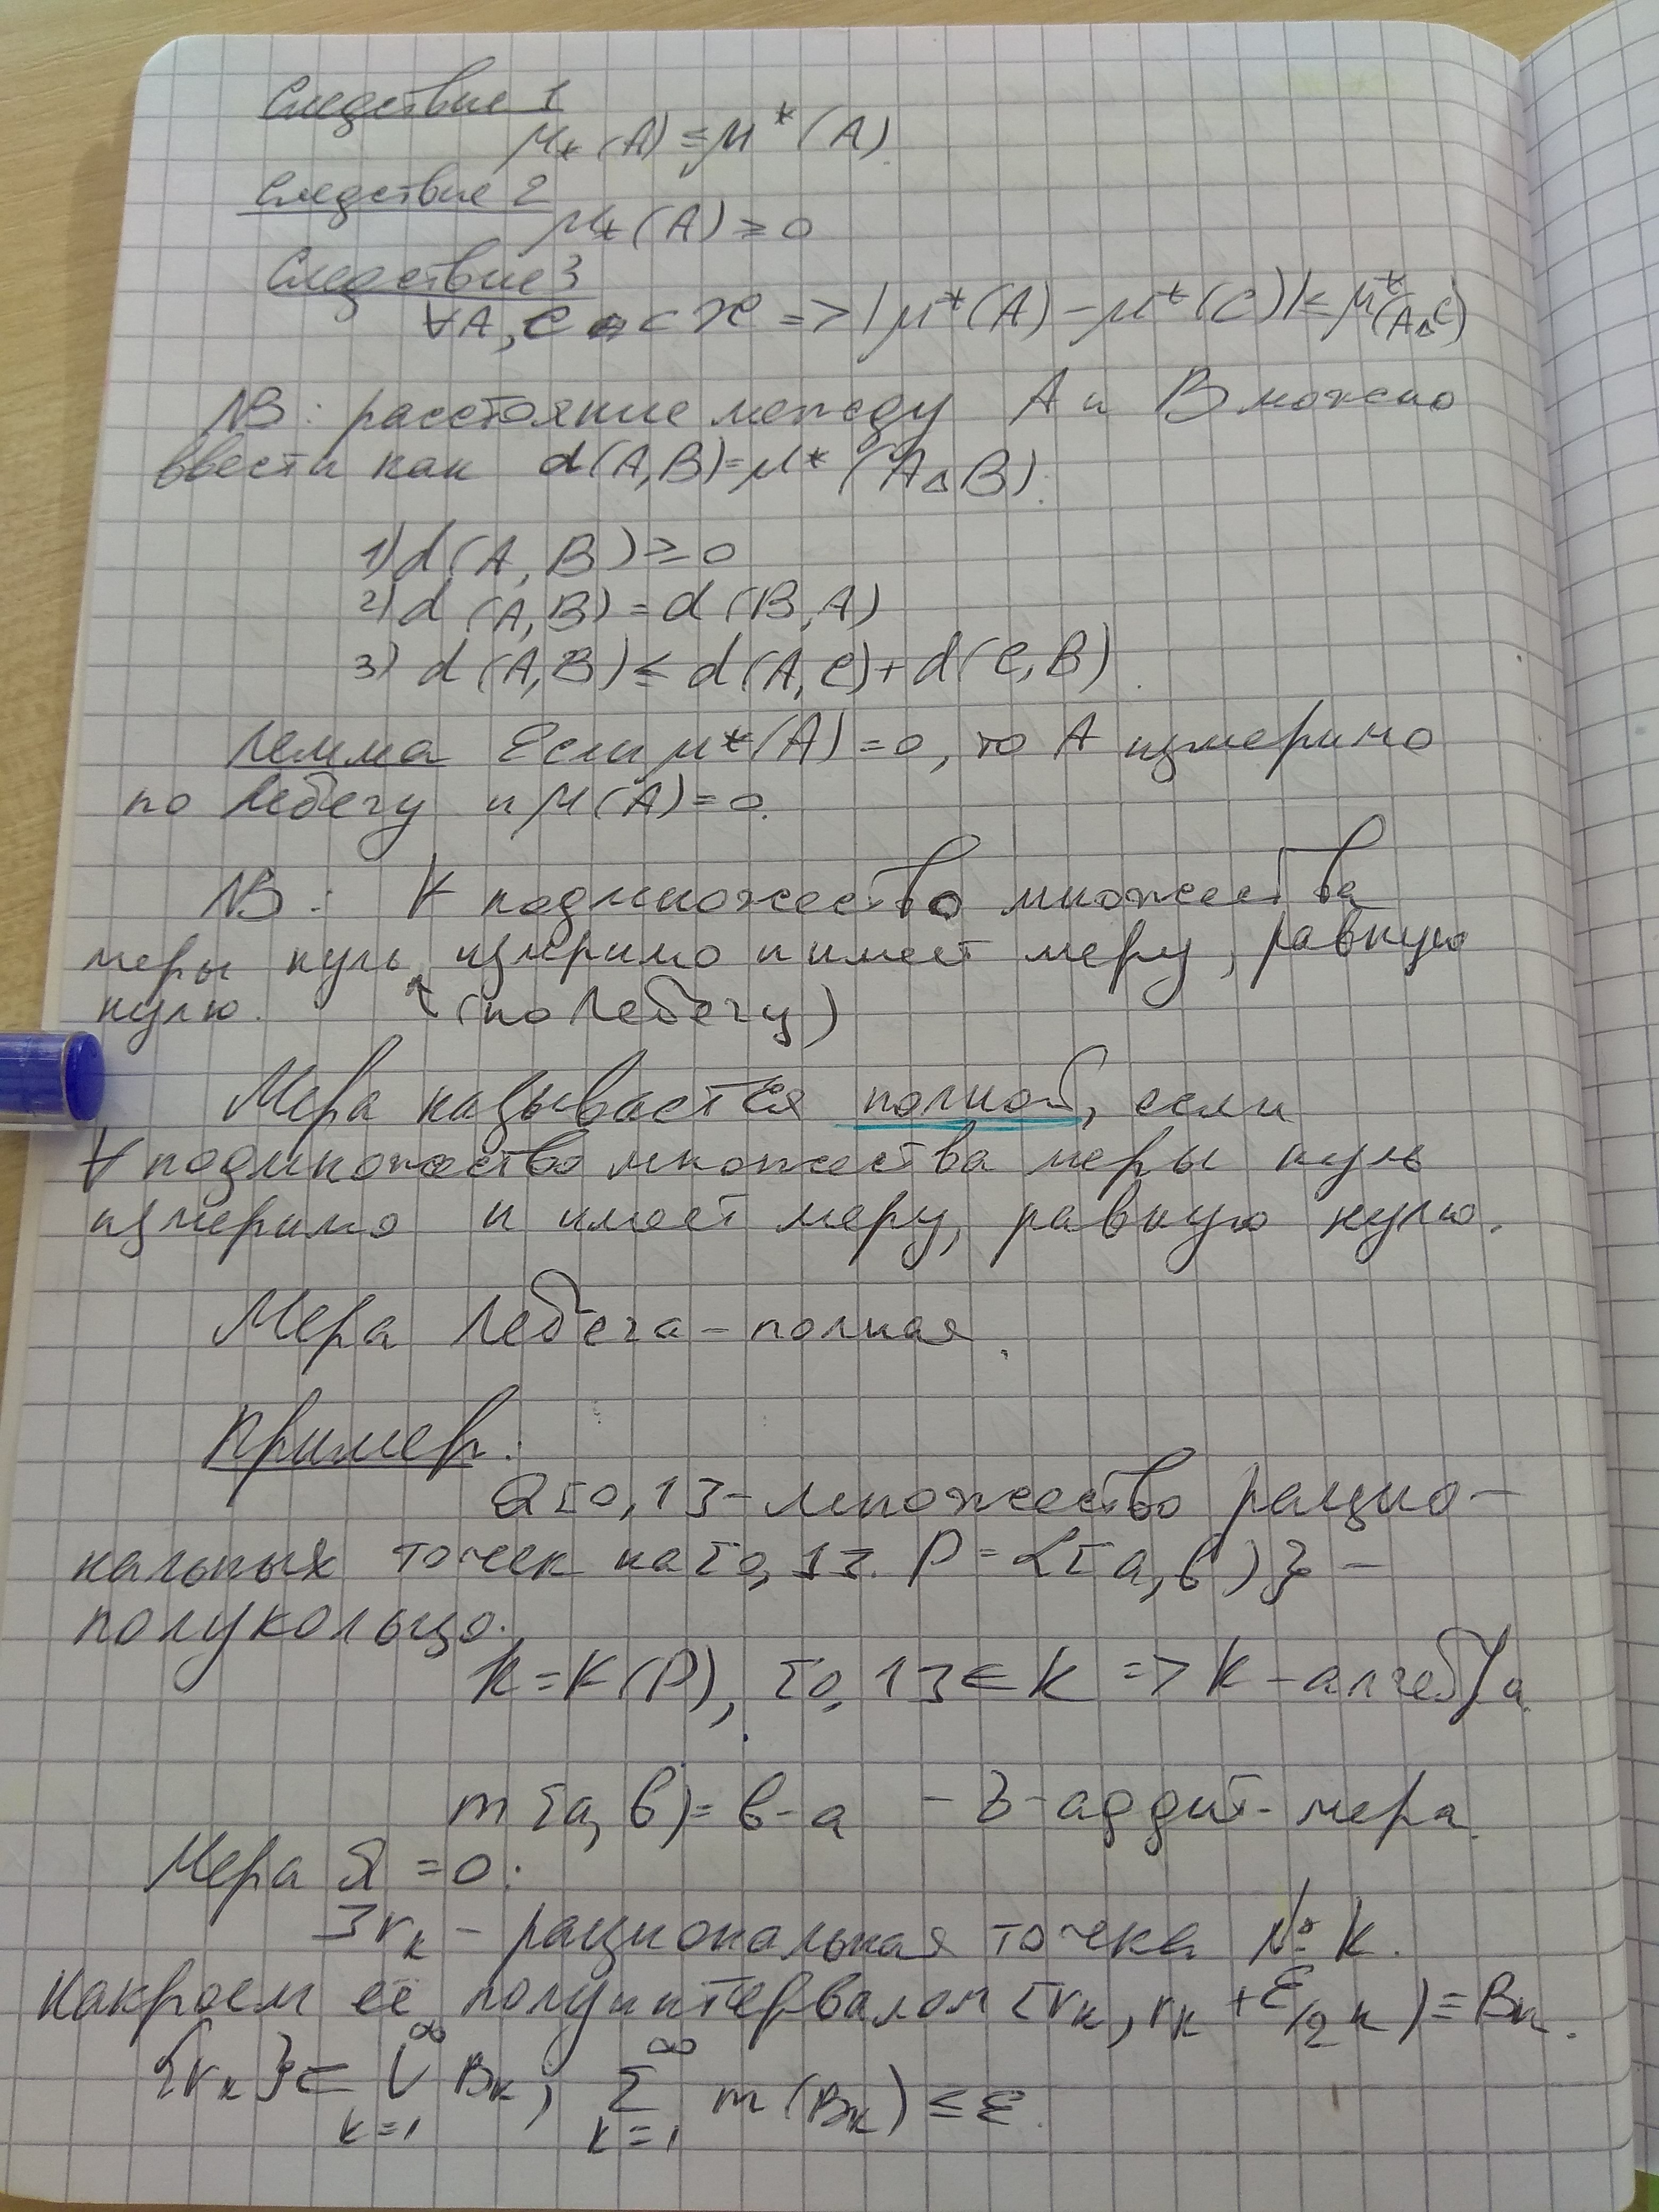 Следствие 1
μ_*(A) ≤ μ*(A)
Следствие 2
μ_*(A) ≥ 0
Следствие 3
∀A, C ⊂ X => |μ*(A) - μ*(C)| ≤ μ*(A△C)
NB: расстояние между A и B можно
ввести как d(A,B) = μ*(A△B).
1) d(A,B) ≥ 0
2) d(A,B) = d(B,A)
3) d(A,B) ≤ d(A,C) + d(C,B).
Лемма Если μ*(A) = 0, то A измеримо
по Лебегу и μ(A) = 0.
NB: ∀ подмножество множества
меры нуль измеримо и имеет меру, равную
нулю. ↑(по Лебегу)
Мера называется полной, если
∀ подмножество множества меры нуль
измеримо и имеет меру, равную нулю.
Мера Лебега - полная.
Пример:
Q[0,1] - множество рацио-
нальных точек на [0,1]. P = {[a,b)} -
полукольцо.
K = K(P), [0,1] ∈ K => K - алгебра.
m[a,b) = b - a - σ-аддит. мера.
Мера Q = 0:
∃ r_k - рациональная точка № k.
Накроем её полуинтервалом [r_k, r_k + ε/2^k) = B_k.
{r_k} ⊂ ∪_{k=1}^∞ B_k; ∑_{k=1}^∞ m(B_k) ≤ ε.